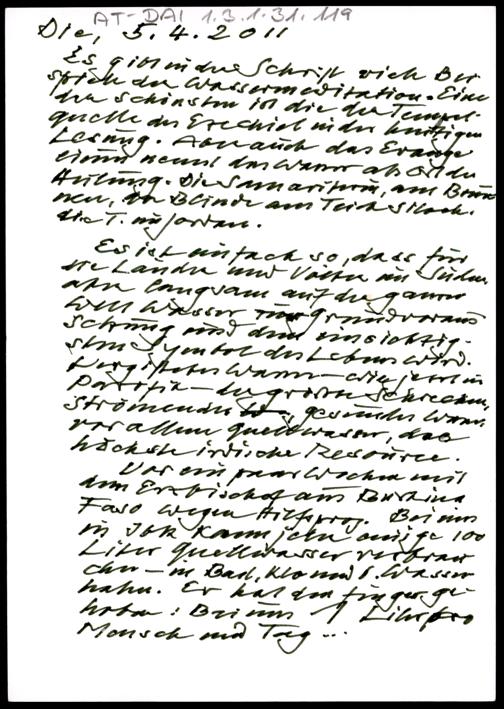 AT-DAI 1.3.1.31.119
Die, 5.4.2011
Es gibt in der Schrift viele Bei
spiele der Wassermeditation. Eine
der schönsten ist die der Tempel-
quelle des Ezechiel in der heutigen
Lesung. Aber auch das Evange
lium nennt das Wasser als Ort der
Heilung. Die Samariterin, am Brun
nen, der Blinde am Teich Siloah.
die T. im Jordan.
Es ist einfach so, dass für
die Länder und Völker im Süden
aber langsam auf der ganzen
Welt Wasser zur Grundvoraus
setzung und dem einsichtig-
sten Symbol des Lebens wird.
Vergiftetes Wasser – wie jetzt im
Pazifik – der grösste Schrecken,
strömendes gesundes Wasser,
vor allem Quellwasser, das
höchste irdische Ressource.
Vor ein paar Wochen mit
dem Erzbischof aus Burkina
Faso wegen Hilfsproj. Bei uns
in Ibk kann jeder einige 100
Liter Quellwasser verbrau
chen – in Bad, Klo und Wasser
hahn. Er hat den Finger ge
hoben: Bei uns 1 Liter pro
Mensch und Tag ...